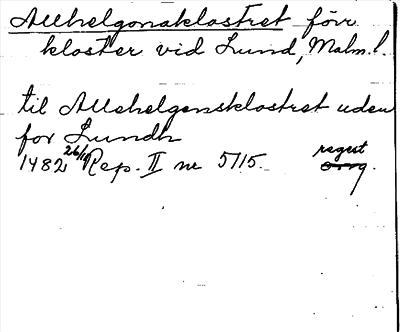 Allhelgonaklostret förr
kloster vid Lund, Malm. l.
til Allehelgensklostret uden
for Lundh
1482 26/10 Rep. II nr 5715. regest orig.